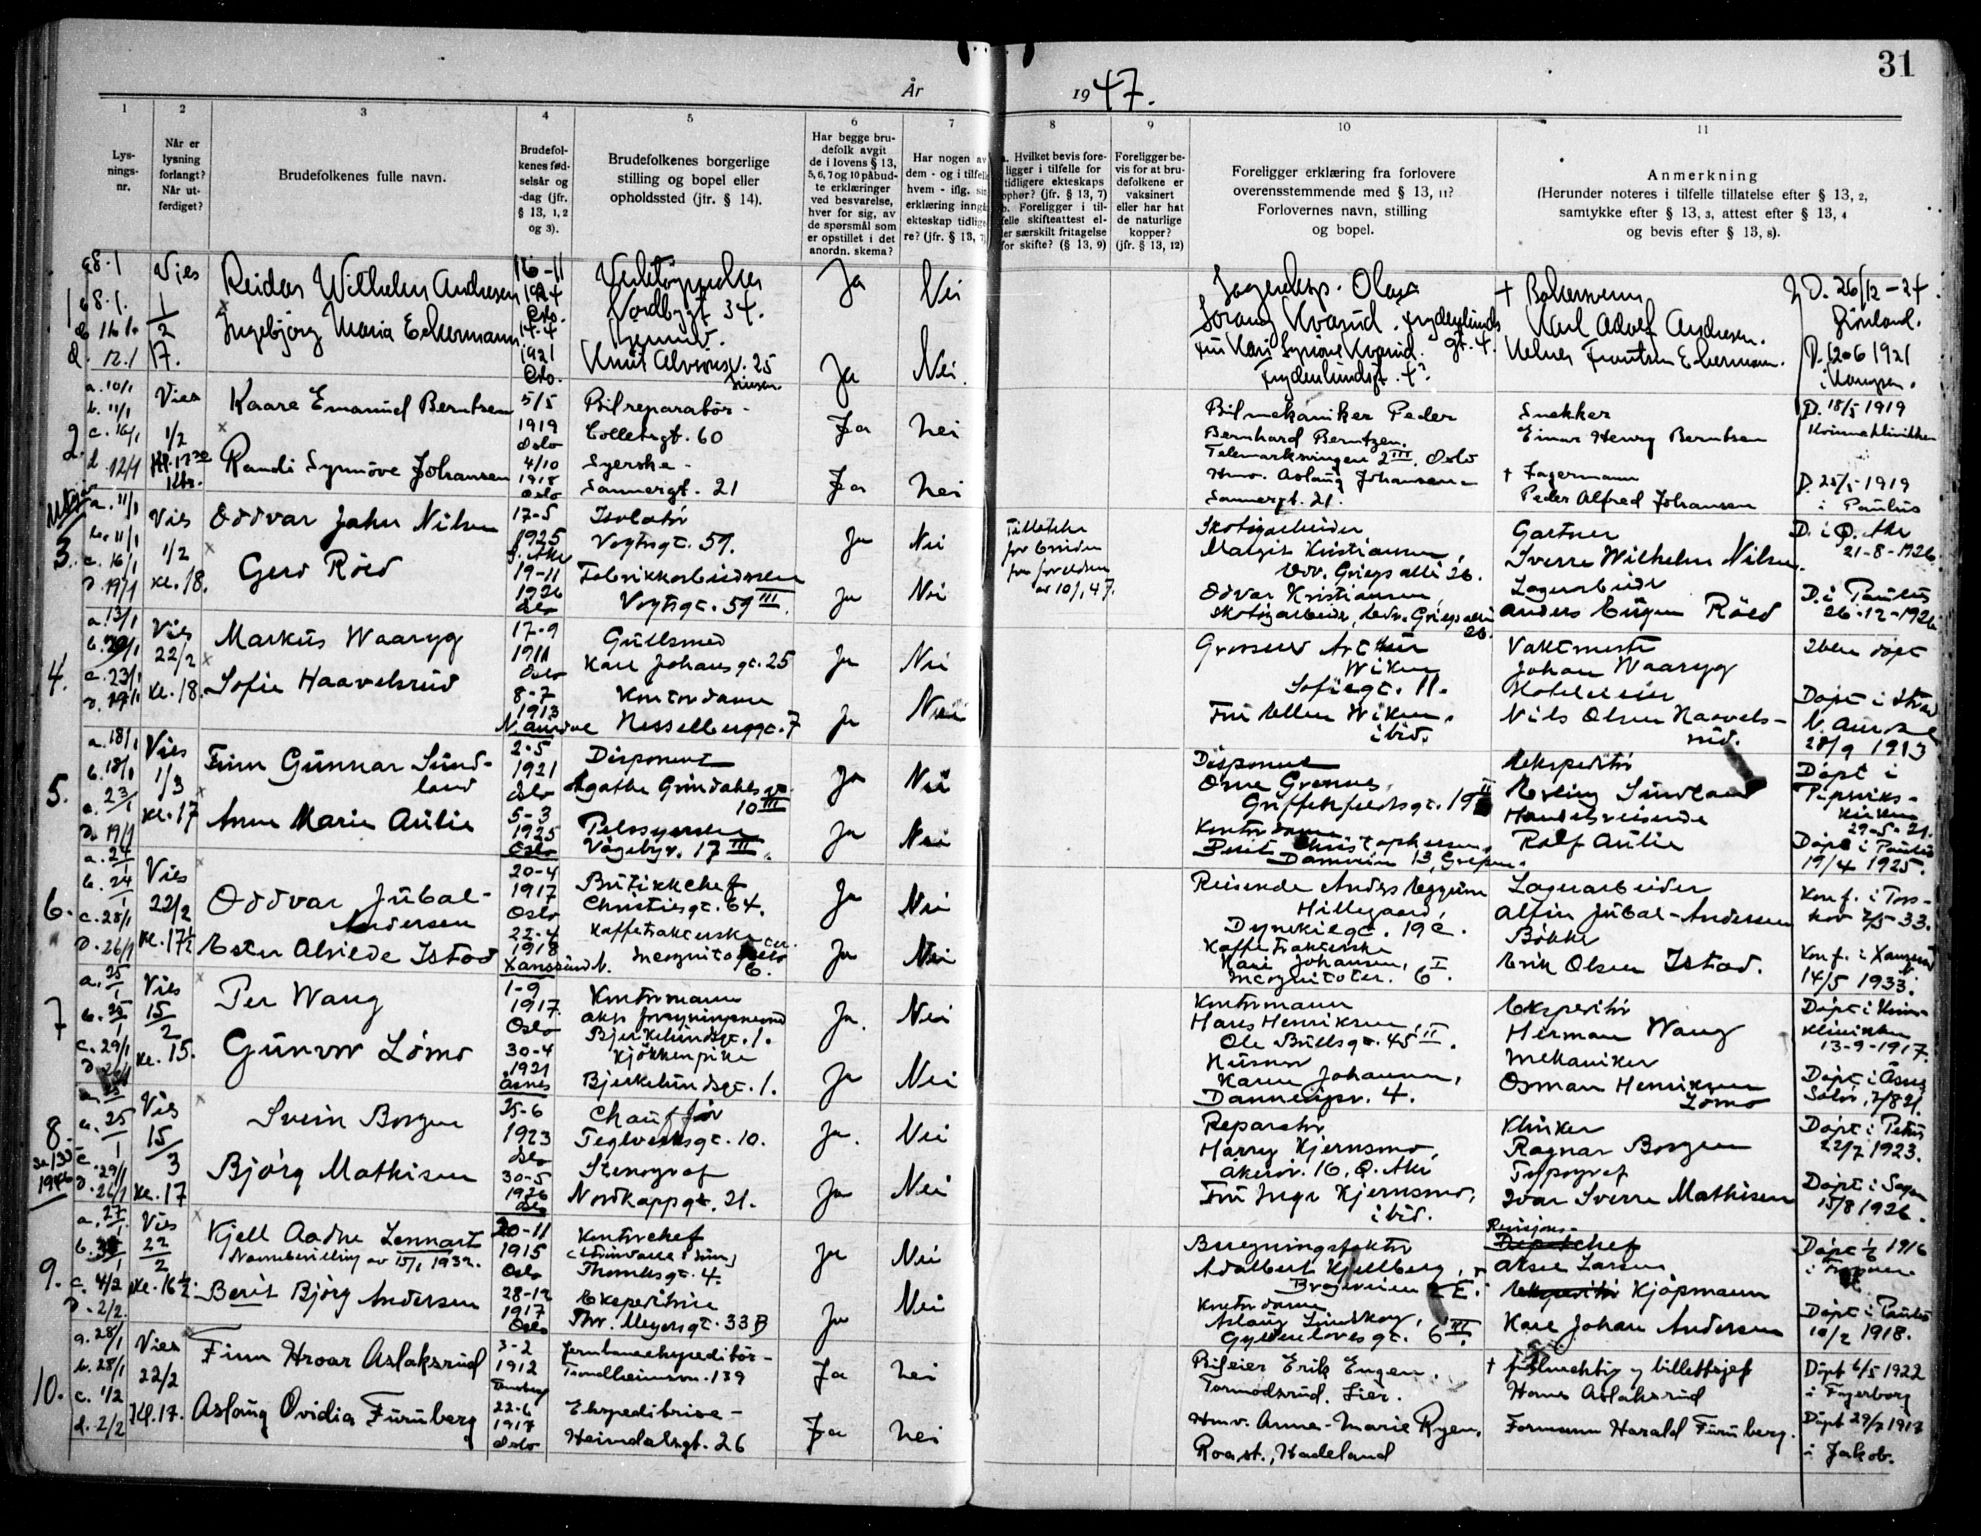 31
År
19 47.
1
2
3
4
5
6
7
8
9
10
11
Lys-
nings-
nr.
Når er
lysning
forlangt?
Når ut-
ferdiget?
Brudefolkenes fulle navn.
Brudefol-
kenes fød-
selsår og
-dag (jfr.
§ 13, 1, 2
og 3).
Brudefolkenes borgerlige
stilling og bopel eller
opholdssted (jfr. § 14).
Har begge bru-
defolk avgit
de i lovens § 13,
5, 6, 7 og 10 påbud-
te erklæringer
ved besvarelse,
hver for sig, av
de spørsmål som
er opstillet i det
anordn. skema?
Har nogen av
dem - og i tilfelle
hvem - iflg. sin
erklæring inngå
ekteskap tidlige-
re? (jfr. § 13, 7)
a. Hvilket bevis fore-
ligger i tilfelle for
tidligere ekteskaps
ophør? (jfr. § 13, 7)
b. Foreligger i til-
felle skifteattest el-
ler særskilt fritagelse
for skifte? (§ 13, 9)
Foreligger be-
vis for at bru-
defolkene er
vaksinert
eller har hat
de naturlige
kopper?
(jfr. § 13, 12)
Foreligger erklæring fra forlovere
overensstemmende med § 13, 11?
Forlovernes navn, stilling
og bopel.
Anmerkning
(Herunder noteres i tilfelle tillatelse efter § 13, 2,
samtykke efter § 13, 3, attest efter § 13, 4
og bevis efter § 13, 8).
1
Vies
1/2
17.
Reidar Wilhelm Andresen
16-11
1924
Oslo.
Nordbygt 34.
Ja
Nei
Olaf
+
Karl Adolf Andresen.
D. 26/12-24.
Grønland.
Ingebjörg Maria Eckermann
14-4
1921
Oslo.
25
Ja
Nei.
Frydenlundsgt. 4.
D. 12-6 1921
2.
a. 10/1
b. 11/1
c. 16/1
d. 12/1
Vies
1/2
Kl. 17 30
Kaare Emanuel Berntsen
5/5
1919
Oslo
Bilreparatör -
Colletsgt. 60
Ja
nei
Bilmekaniker Peder
Bernhard Berntzen.
Telemarksvingen 2 III. Oslo
Snekker
Einar Henry Berntsen
D. 18/5 1919
Kvinneklinikken
Randi Synnöve Johansen
4/10
1918
Oslo
Syerske -
Sannergt. 21
Ja
nei
Hmv. Aslaug Johansen -
Sannergt. 21.
+ Lagermann
Peder Alfred Johansen
D. 25/5-1919
i Paulus
3.
a. 11/1
b. 11/1
c. 16/1
D. 19/1
Vies
1/2
kl. 18.
Oddvar Jahn Nilsen
17-5
1925
Ö. Aker
Isolatör
Vogtsgt. 59.
Ja
Nei
Tillatelse
for bruden
fra foreldre
av 10/1 47.
Skotøyarbeider
Margit Kristiansen,
Edv. Griegs alle 26.
Gartner
Sverre Wilhelm Nilsen.
D. i Ö. Aker
21-8-1926.
Gerd Röed
19-11
1926
Oslo
Fabrikkarbeiderske
Vogtsgt. 59 III.
Ja
Nei
Odvar Kristiansen,
Skotøyarbeider, Edv. Griegs alle
26.
Lagerarbeider
Anders Eugen Röed
D. i Paulus
26-12-1926
4.
a. 13/1
b. 20/1
c. 23/1
D. 29/1
Vies
22/2
kl. 18.
Markus Waaryg
17-9
1911
Oslo
Gullsmed
Karl Johans gt. 25
Ja
Nei
Grosserer Arthur
Wiken
Sofiegt. 11.
Vaktmester
Johan Waaryg
Sofie Haavelsrud
8-7
1913
N. Aurdal
Kontordame
Nesselberggt. 7
Ja
Nei
Fru Ellen Wiken,
ibid.
Nils Olsen Haavels-
rud.
N. Aurdal
28/9 1913
5.
a. 18/1
b. 18/1
c. 23/1
D. 19/1
Vies
1/3
kl. 17
Finn Gunnar Sund-
land
2-5
1921
Oslo
Disponent
Agathe Gröndahlsgt.
10 III
Ja
Nei
Disponent
Griffenfeldtsgt. 19 II
Ekspeditör
Erling Sundland
Döpt i
Piperviks-
kirken
29-5-21.
Anne Marie Aulie
5-3
1925
Oslo
Pelssyerske
Vågebyv. 17 III.
Ja
Nei
Kontordame
Berit Christophersen,
Damveien 13, Grefsen.
Handelsreisende
Rolf Aulie
Döpt i Paulus
19/4 1925.
6.
a. 24/1
b. 24/1
c. 28/1
D. 26/1
Vies
22/2
kl. 17½
Oddvar Jubal-
Andersen
20-4
1917
Oslo
Butikkchef
Christiesgt. 64.
Ja
Nei
Reisende Anders
Hillegaard,
Dynekilgt. 19 c.
Lagerarbeider
Alfin Jubal-Andersen
Konf. i Tors-
hov 7/5-33.
Ester Alvilde Istad
22-4
1918
Kanssund N.
Kaffetrakterske
6.
Ja
Nei
Kaffetrakterske
Kari Johansen,
Incognitoter. 6 I.
Bökker
Erik Olsen Istad.
14/5 1933.
7
a. 25/1
b. 25/1
c. 29/1
Vies
15/2
kl. 15.
Per Wang
1-9
1917
Oslo
Kontormann
Bjerkelundsgt. 1.
Ja.
Nei
Kontormann
Hans Henriksen,
Ole Bullsgt. 45 II.
Ekspeditör
Herman Wang
Döpt i Kvinne-
klinikken
13-9-1917.
Gunvor Lömo
30-4
1921
Åsnes
Kjökkenpike
Bjerkelundsgt. 1.
Ja
Nei
Husmor
Karen Johansen,
Dannevigsv. 4.
Mekaniker
Osman Henriksen
Lömo
Döpt i Åsnes
7/8 21.
8.
1946
25/1
c. 29/1
D. 26/1
Vies
15/3
kl. 17
Svein Borgen
25-6
1923
Oslo
Chaufför
Teglverksgt. 10.
Ja.
Nei
Reparatör
Harry Kjernsmo,
Åkersv. 16, Ö. Aker
Kliniker
Ragnar Borgen
Döpt i Petrus
22/7 1923.
Björg Mathisen
30-5
1926
Oslo
Stenograf
Nordkappgt. 21.
Ja
Nei
Fru Inga Kjernsmo,
ibid.
Typograf
Ivar Sverre Mathisen
Döpt i Sagen
15/8 1926.
9.
a. 27/1
c. 4/2
D. 2/2.
Vies
22/2
kl. 16½.
Kjell Aadne Lennart
Navnebevilling av 15/1 1932.
20-11
1915
Oslo
Kontorchef
4.
Ja
Nei
Bygningsfaktor
Adalbert Kjellberg,
Aksel Larsen
1916
Berit Björg Andersen
28-12
1917
Oslo
Ekspeditrise
Thv. Meyersgt. 33 B
Ja
Nei
Kontordame
Aslaug Lindskog,
Gyldenlövesgt. 6 III.
Kjöpmann
Kare Johan Andersen
Döpt i Paulus
10/2 1918.
10.
a. 28/1
b. 28/1
c. 1/2
d. 2/2
Vies
22/2
Kl. 17.
Finn Hroar Aslaksrud
3-2
1912
Tönsberg
Jernbaneekspeditör -
Trondheimsvn. 139
Ja
nei
Bileier Erik Engen,
Tormodsrud, Lier.
+ fullmektig og billettsjef
Hans Aslaksrud
Döpt 6/5 1922
i Fagerborg
Aslaug Ovidia Furuberg
22-6
1917
Oslo
Ekspeditrise -
Heimdalsgt. 26
Ja
nei
Hmv. Anna-Marie Ryen,
Roa st., Hadeland
Formann Harald Furuberg.
Döpt 29/7 1917
i Jakob.